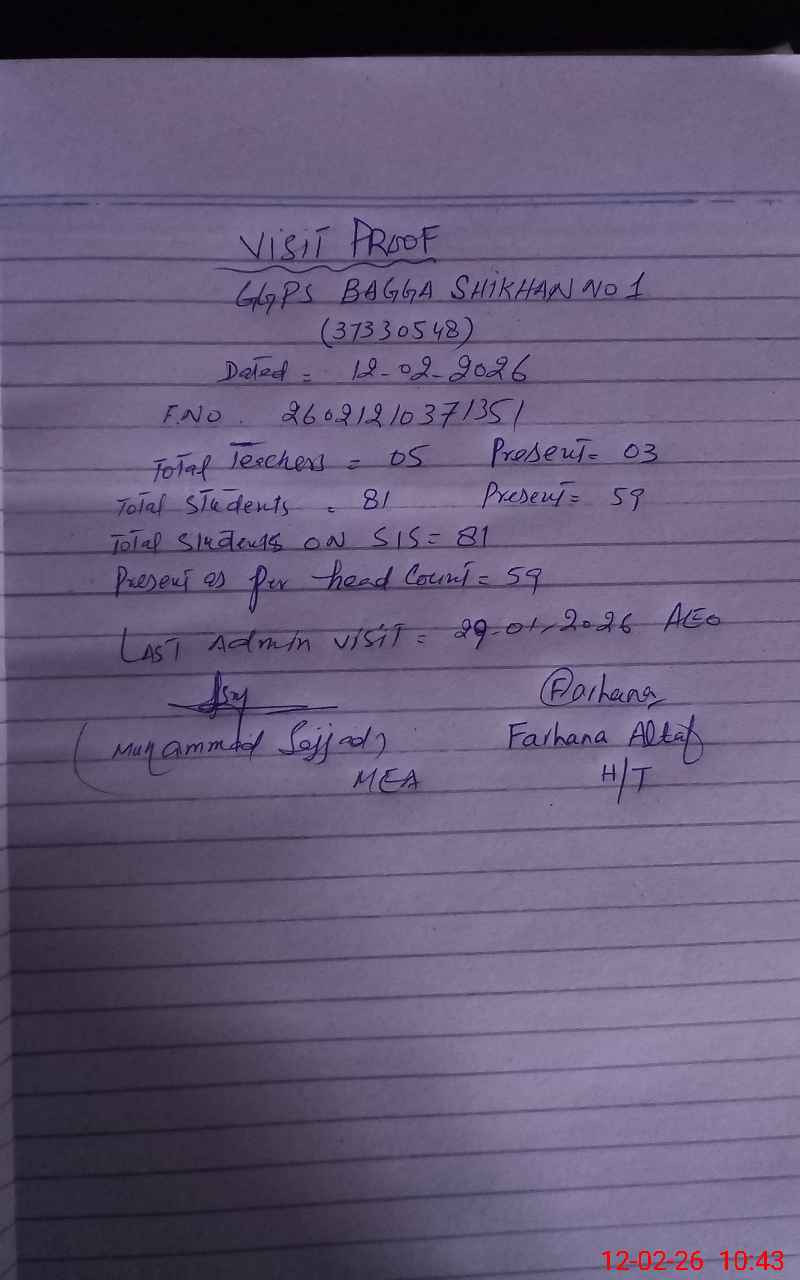 VISIT PROOF
GGPS BAGGA SHIKHAN NO 1
(37330548)
Dated = 12-02-2026
F.NO. 26021210371351
Total Teachers = 05 Present = 03
Total Students = 81 Present = 59
Total Students ON SIS = 81
Present as per head Count = 59
LAST Admin visit = 29-01-2026 AEO
Farhana
(Muhammad Sajjad) Farhana Altaf
MEA H/T
12-02-26 10:43